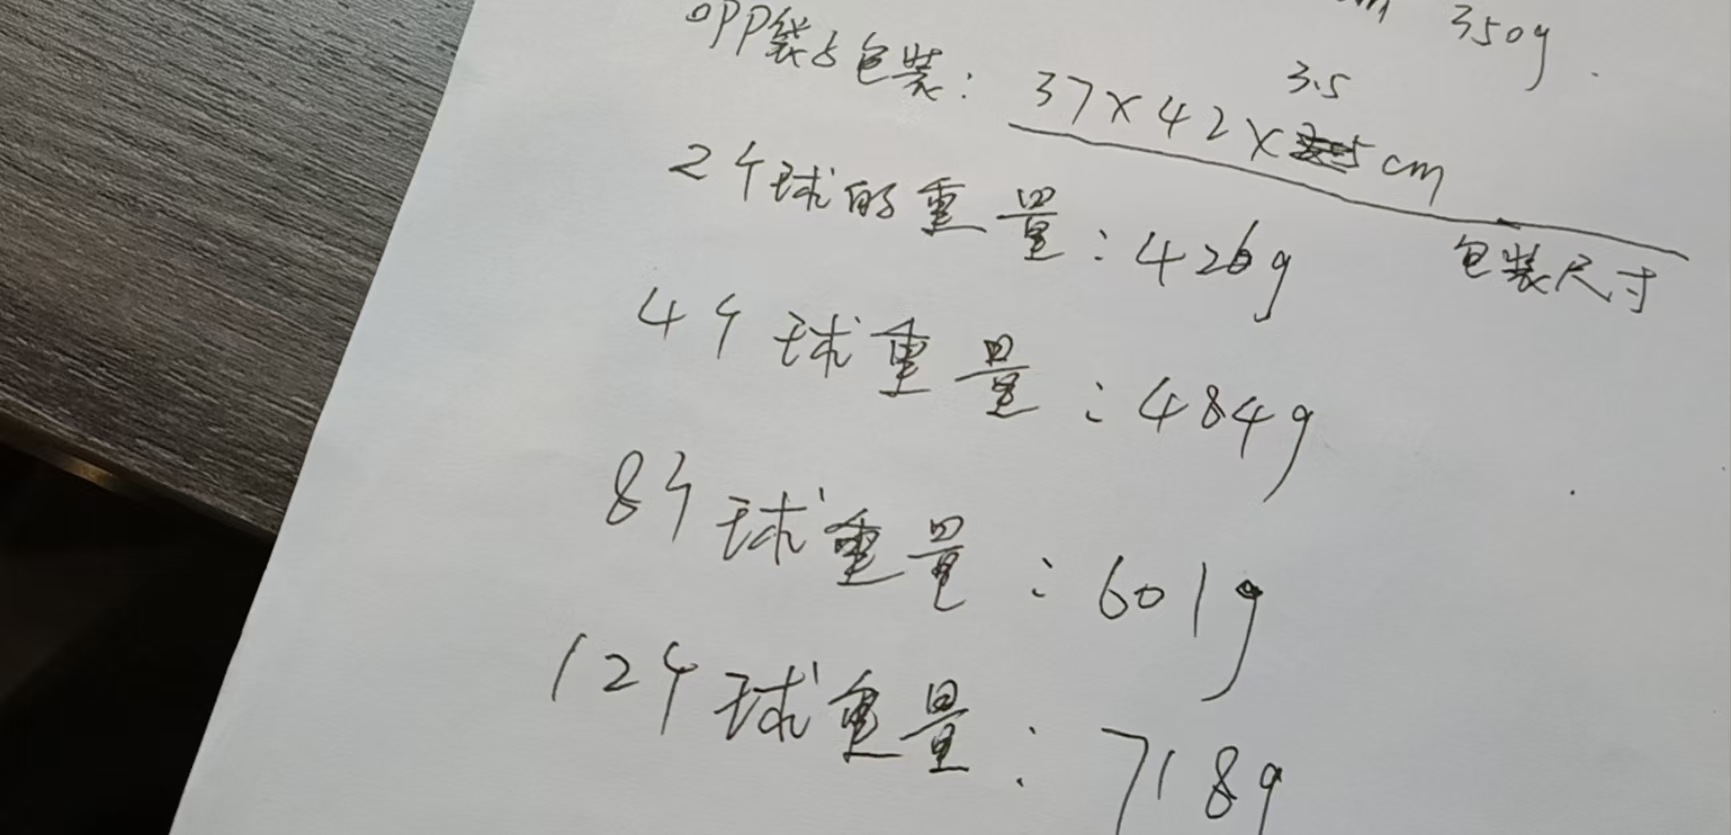 350g
OPP袋与包装: 37×42×3.5cm
包装尺寸
2个球的重量:426g
4个球重量:484g
8个球重量:601g
12个球重量:718g